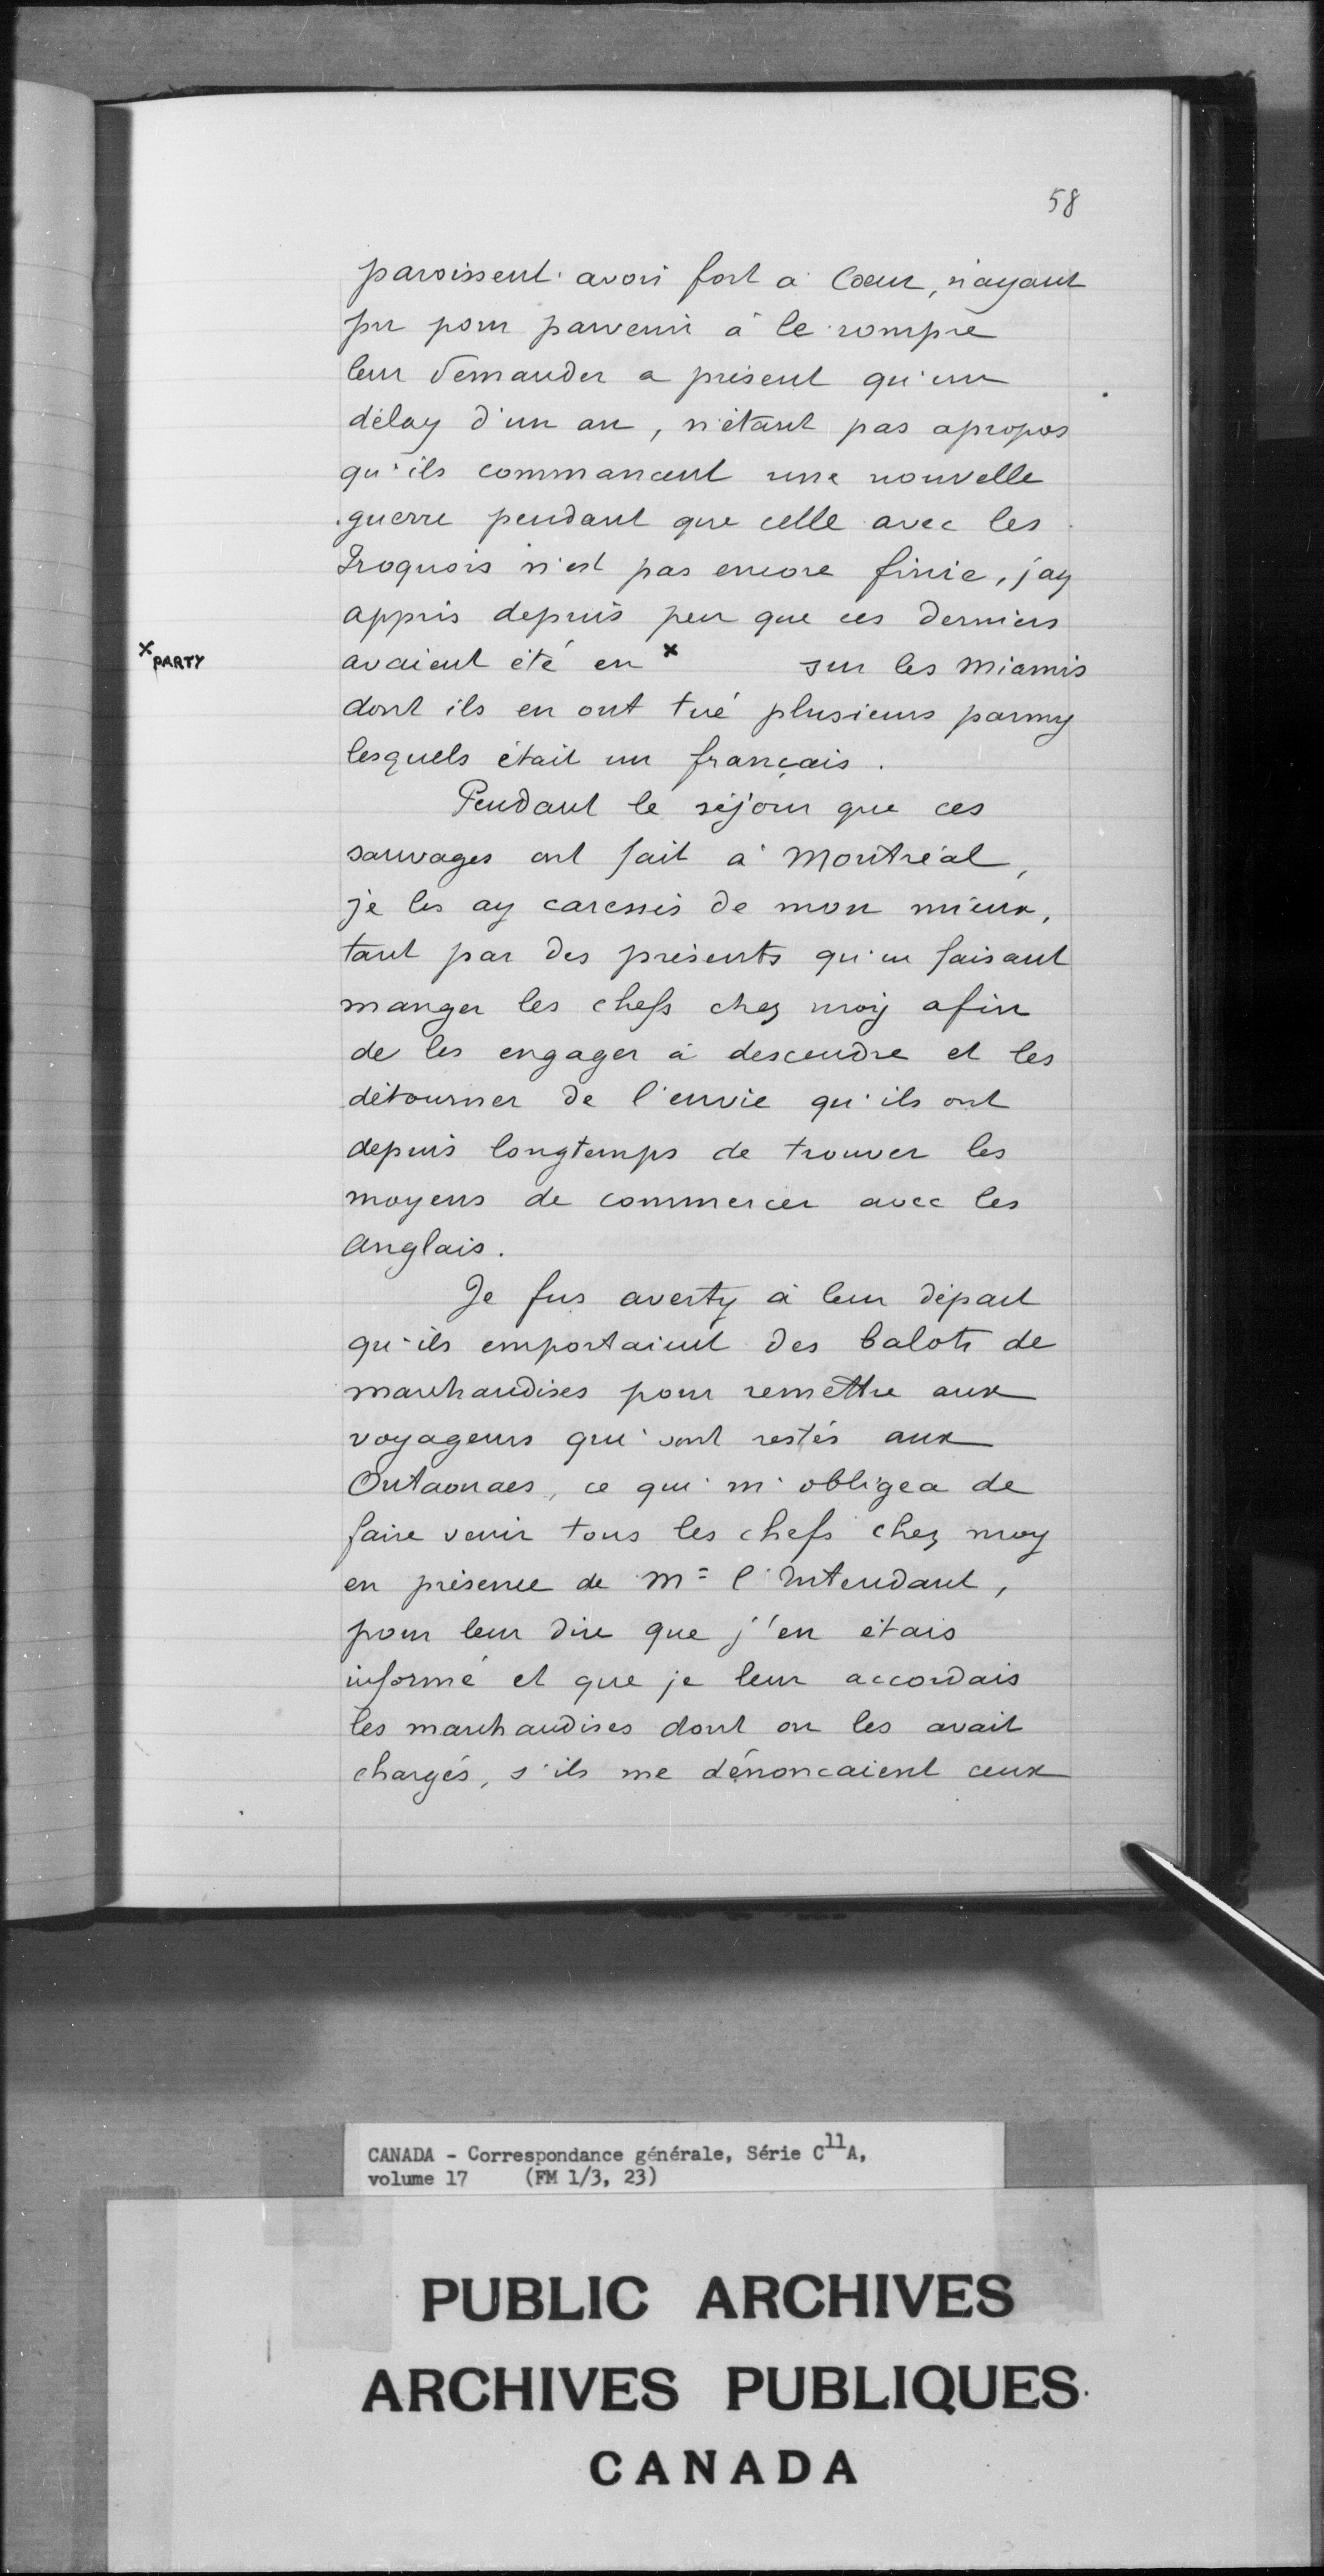 58
paroissent avoir fort a Coeur, n'ayant
pu pour parvenir à le rompre
leur demander a présent qu'un
délay d'un an, n'étant pas apropos
qu'ils commancent une nouvelle
guerre pendant que celle avec les
Iroquois n'est pas encore finie, j'ay
appris depuis peu que ces derniers
x PARTY
avaient été en x sur les Miamis
dont ils en ont tué plusieurs parmy
lesquels était un français.
Pendant le séjour que ces
sauvages ont fait à Montréal,
je les ay caressés de mon mieux,
tant par des présents qu'en faisant
manger les chefs chez moy afin
de les engager à descendre et les
détourner de l'envie qu'ils ont
depuis longtemps de trouver les
moyens de commercer avec les
Anglais.
Je fus averty à leur départ
qu'ils emportaient des balots de
marchandises pour remettre aux
voyageurs qui sont restés aux
Outaouaes, ce qui m'obligea de
faire venir tous les chefs chez moy
en présence de Mr l'Intendant,
pour leur dire que j'en étais
informé et que je leur accordais
les marchandises dont on les avait
chargés, s'ils me dénoncaient ceux
CANADA - Correspondance générale, Série C11A,
volume 17 (FM 1/3, 23)
PUBLIC ARCHIVES
ARCHIVES PUBLIQUES
CANADA